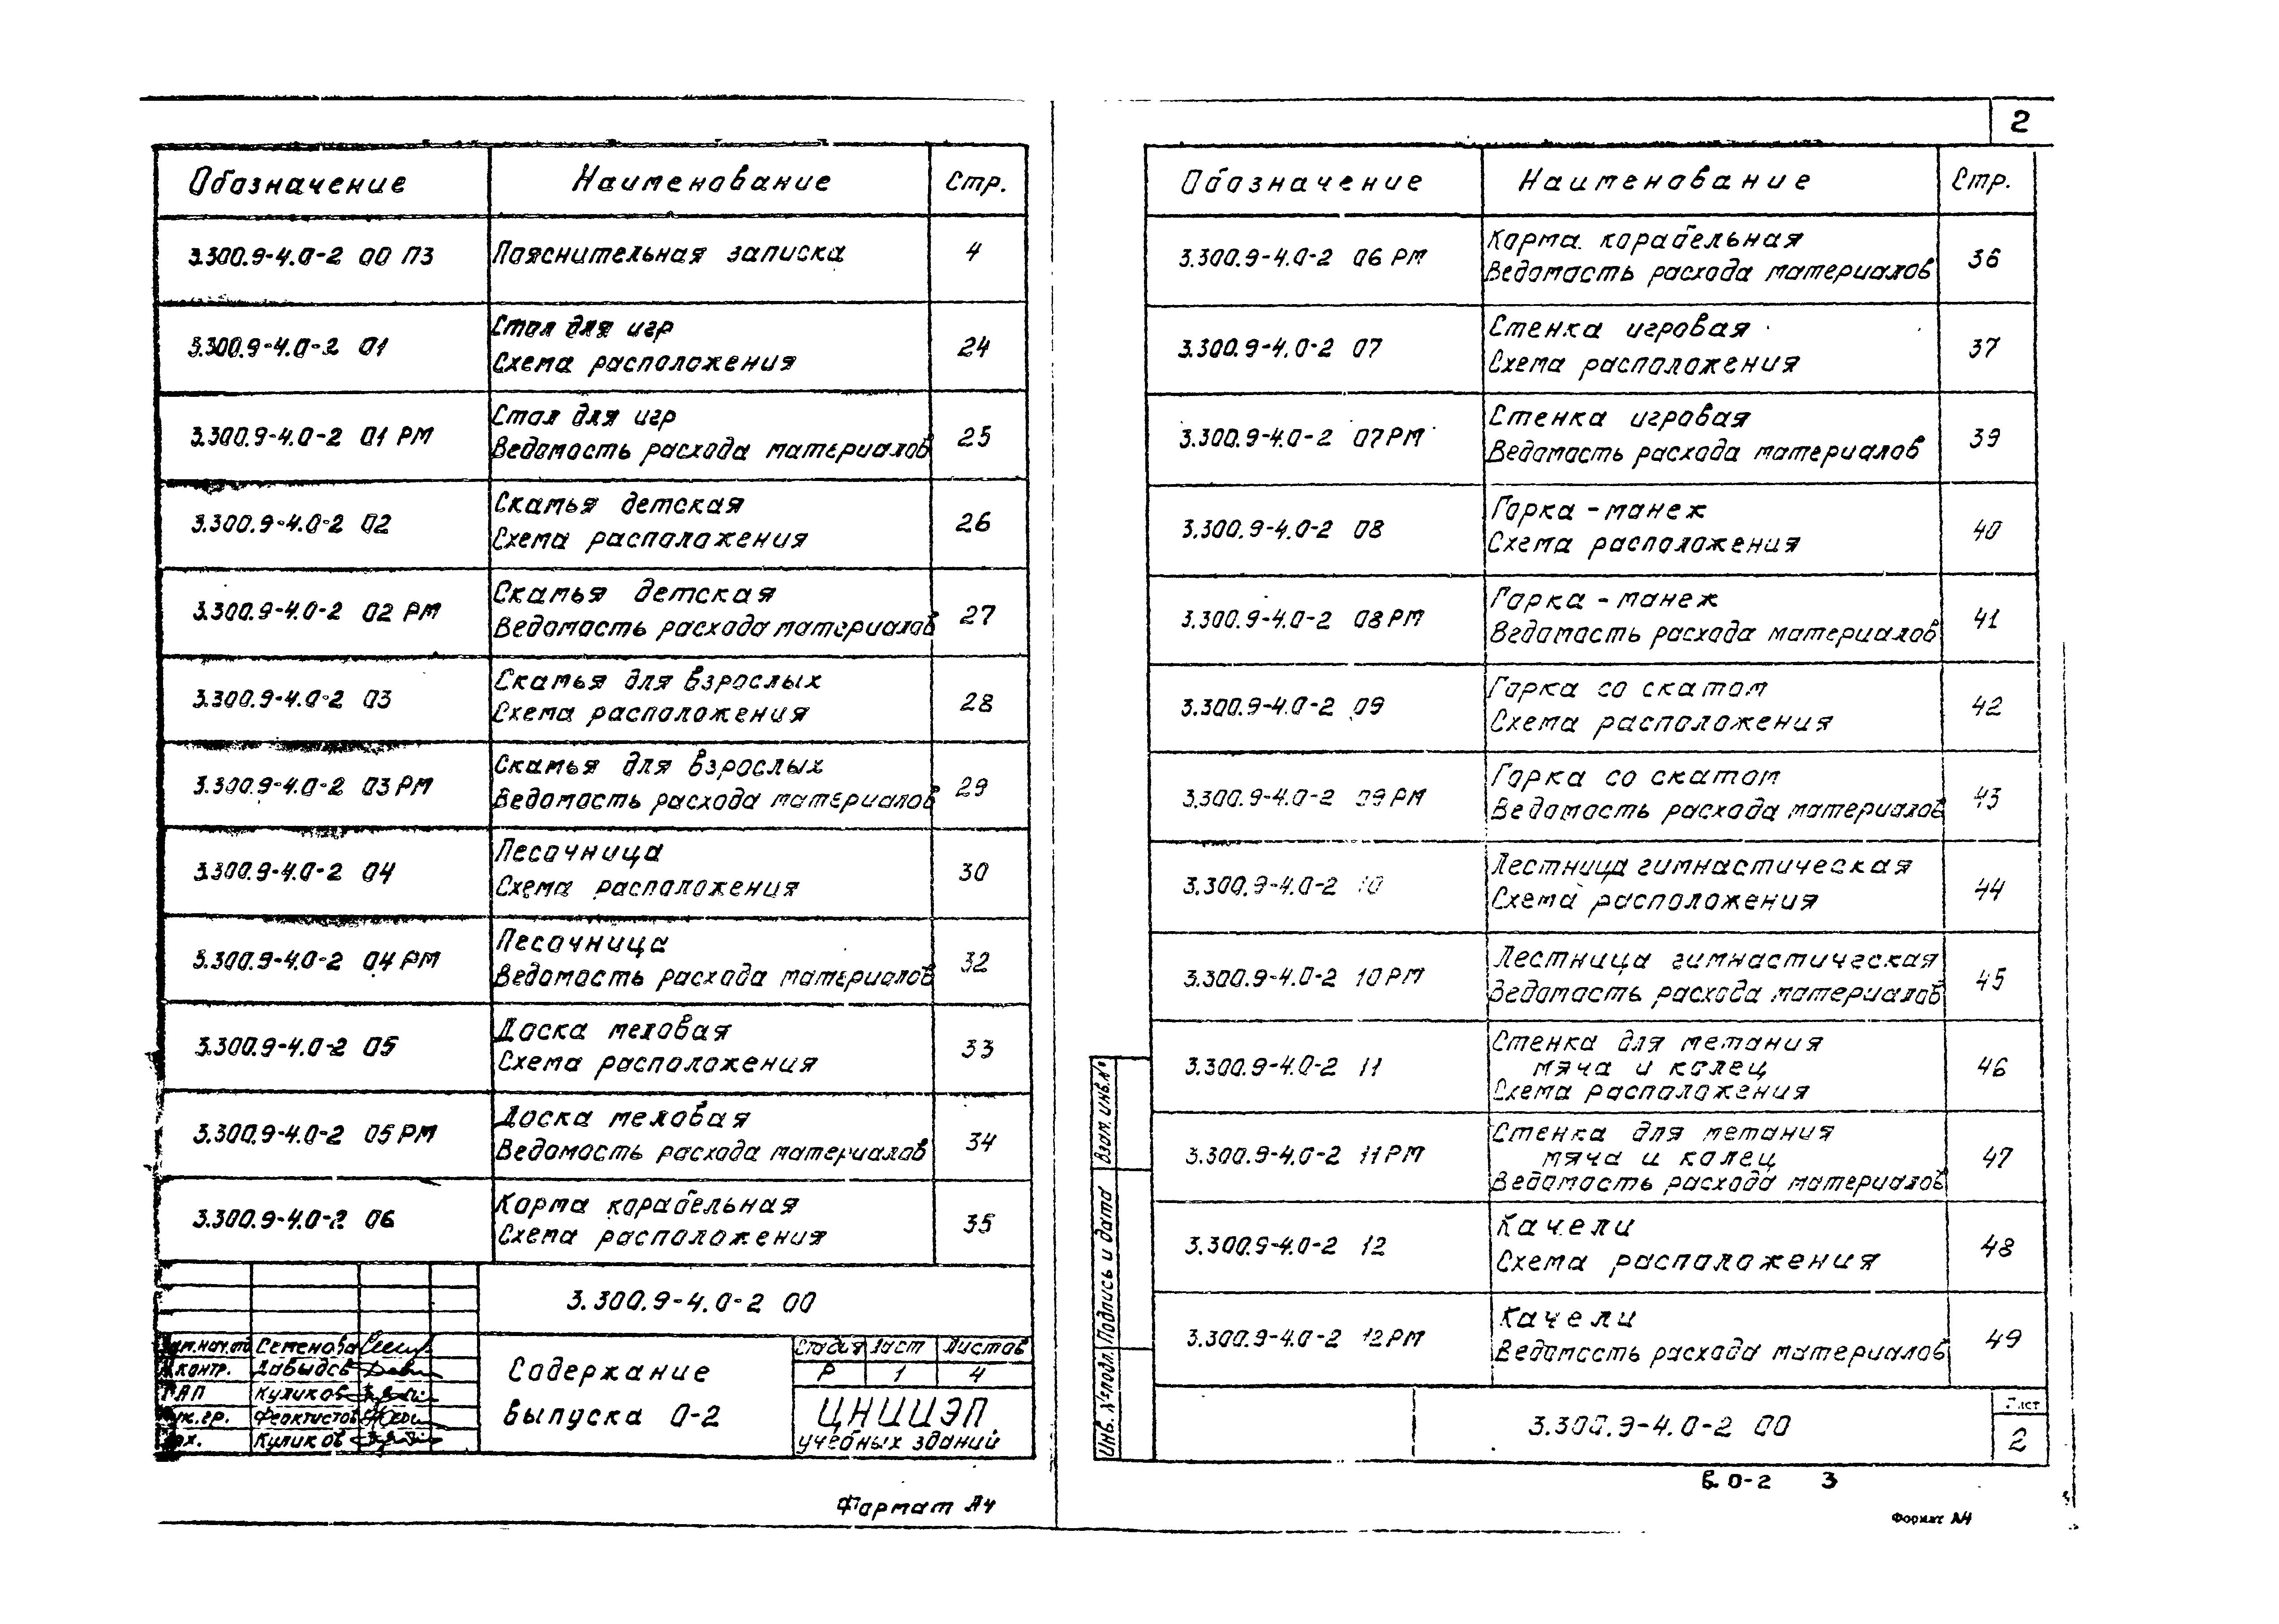 Обозначение Наименование Стр.
3.300.9-4.0-2 00 ПЗ Пояснительная записка 4
Стол для игр
3.300.9-4.0-2 01 24
Схема расположения
Стол для игр
3.300.9-4.0-2 01 РМ 25
Ведомость расхода материалов
Скамья детская
3.300.9-4.0-2 02 26
Схема расположения
Скамья детская
3.300.9-4.0-2 02 РМ 27
Ведомость расхода материалов
Скамья для взрослых
3.300.9-4.0-2 03 28
Схема расположения
Скамья для взрослых
3.300.9-4.0-2 03 РМ 29
Ведомость расхода материалов
Песочница
3.300.9-4.0-2 04 30
Схема расположения
Песочница
3.300.9-4.0-2 04 РМ 32
Ведомость расхода материалов
Доска меловая
3.300.9-4.0-2 05 33
Схема расположения
Доска меловая
3.300.9-4.0-2 05 РМ 34
Ведомость расхода материалов
Карта корабельная
3.300.9-4.0-2 06 35
Схема расположения
3.300.9-4.0-2 00
Зам.нач.отд Семенова
Н.контр. Давыдов
ГАП Куликов
Рук.гр. Феоктистов
Арх. Куликов
Содержание
выпуска 0-2
Стадия Лист Листов
Р 1 4
ЦНИИЭП
учебных зданий
Формат А4
2
Обозначение Наименование Стр.
Карта корабельная
3.300.9-4.0-2 06 РМ 36
Ведомость расхода материалов
Стенка игровая
3.300.9-4.0-2 07 37
Схема расположения
Стенка игровая
3.300.9-4.0-2 07 РМ 39
Ведомость расхода материалов
Горка - манеж
3.300.9-4.0-2 08 40
Схема расположения
Горка - манеж
3.300.9-4.0-2 08 РМ 41
Ведомость расхода материалов
Горка со скатом
3.300.9-4.0-2 09 42
Схема расположения
Горка со скатом
3.300.9-4.0-2 09 РМ 43
Ведомость расхода материалов
Лестница гимнастическая
3.300.9-4.0-2 10 44
Схема расположения
Лестница гимнастическая
3.300.9-4.0-2 10 РМ 45
Ведомость расхода материалов
Стенка для метания
мяча и колец
3.300.9-4.0-2 11 46
Схема расположения
Стенка для метания
мяча и колец
3.300.9-4.0-2 11 РМ 47
Ведомость расхода материалов
Качели
3.300.9-4.0-2 12 48
Схема расположения
Качели
3.300.9-4.0-2 12 РМ 49
Ведомость расхода материалов
Взам. инв.№
Подпись и дата
Инв. № подл.
3.300.9-4.0-2 00
Лист
2
В. 0-2 3
Формат А4